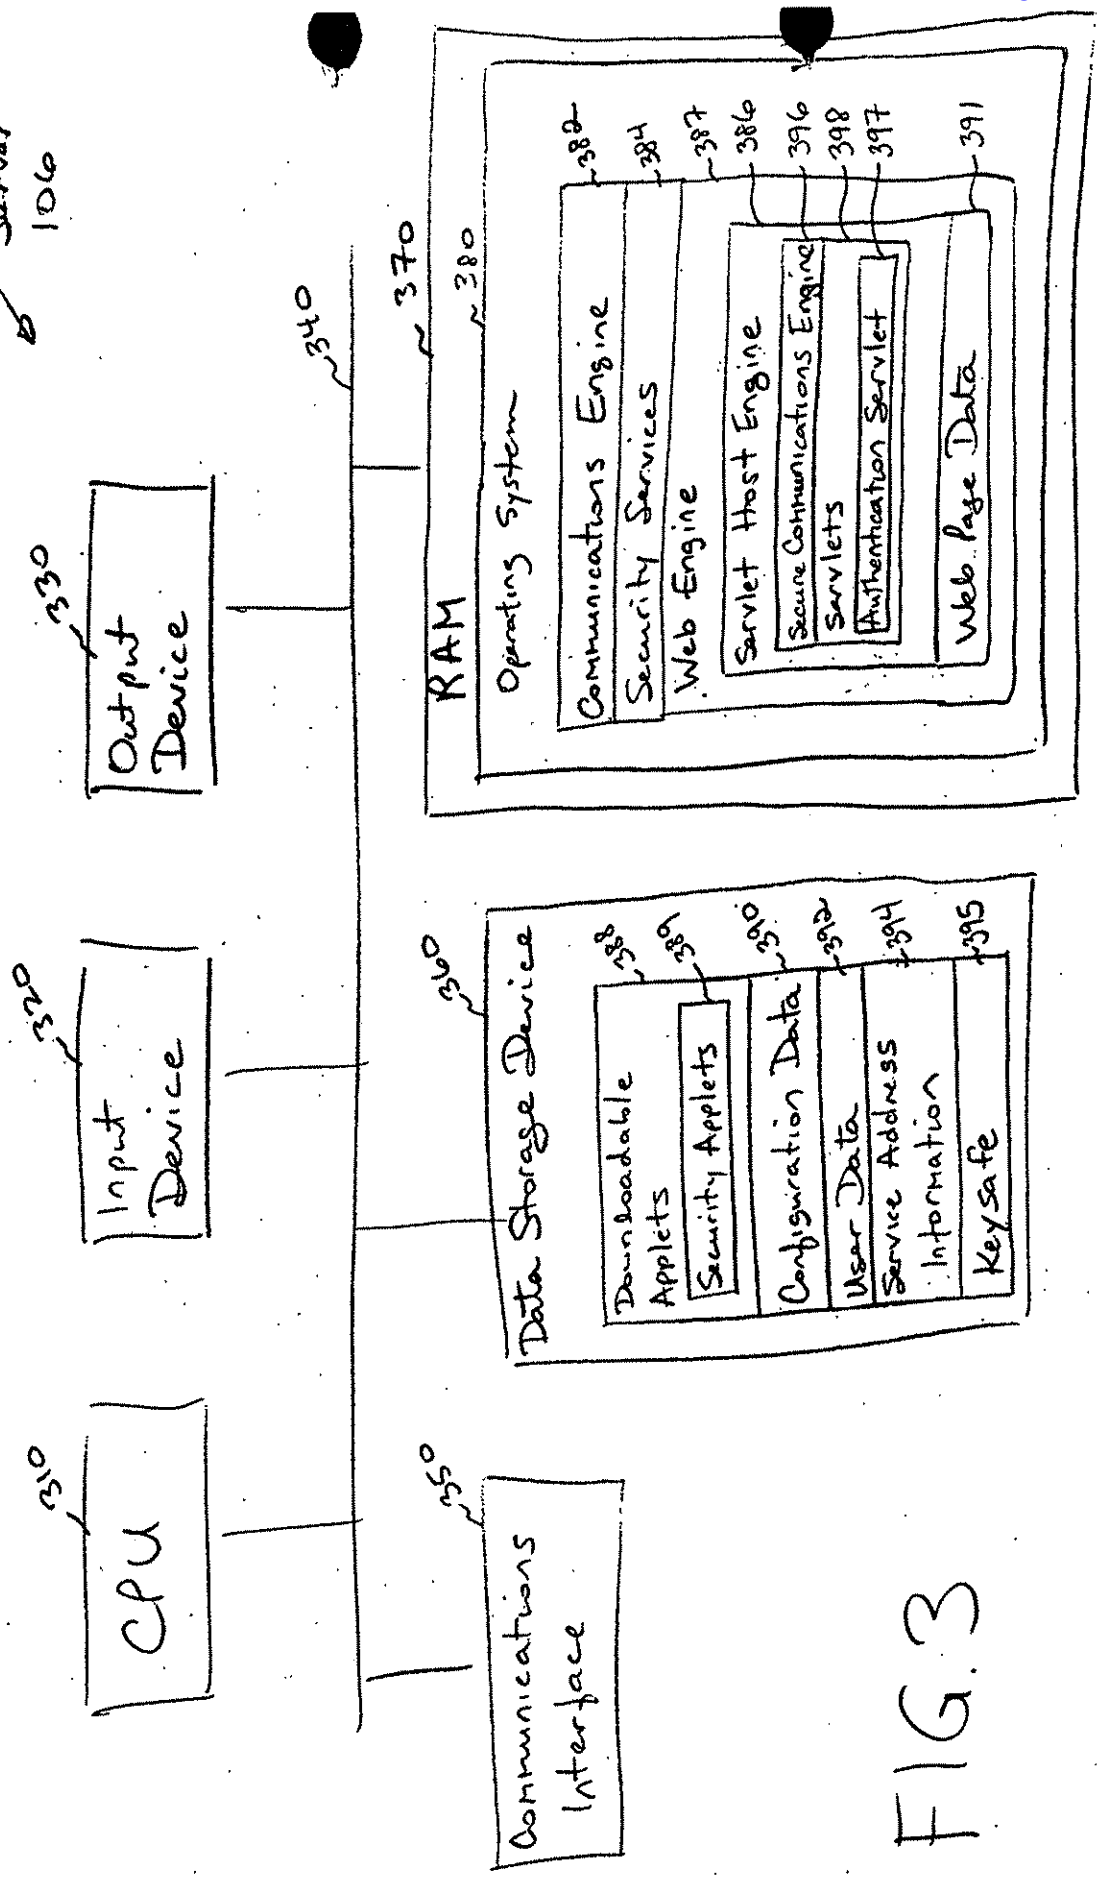 Server
106
310
CPU
320
Input
Device
330
Output
Device
340
350
Communications
Interface
360
Data Storage Device
388
Downloadable
Applets
389
Security Applets
390
Configuration Data
392
User Data
394
Service Address
Information
395
Keysafe
370
RAM
380
Operating System
382
Communications Engine
384
Security Services
387
Web Engine
386
Servlet Host Engine
396
Secure Communications Engine
398
Servlets
397
Authentication Servlet
391
Web Page Data
FIG. 3